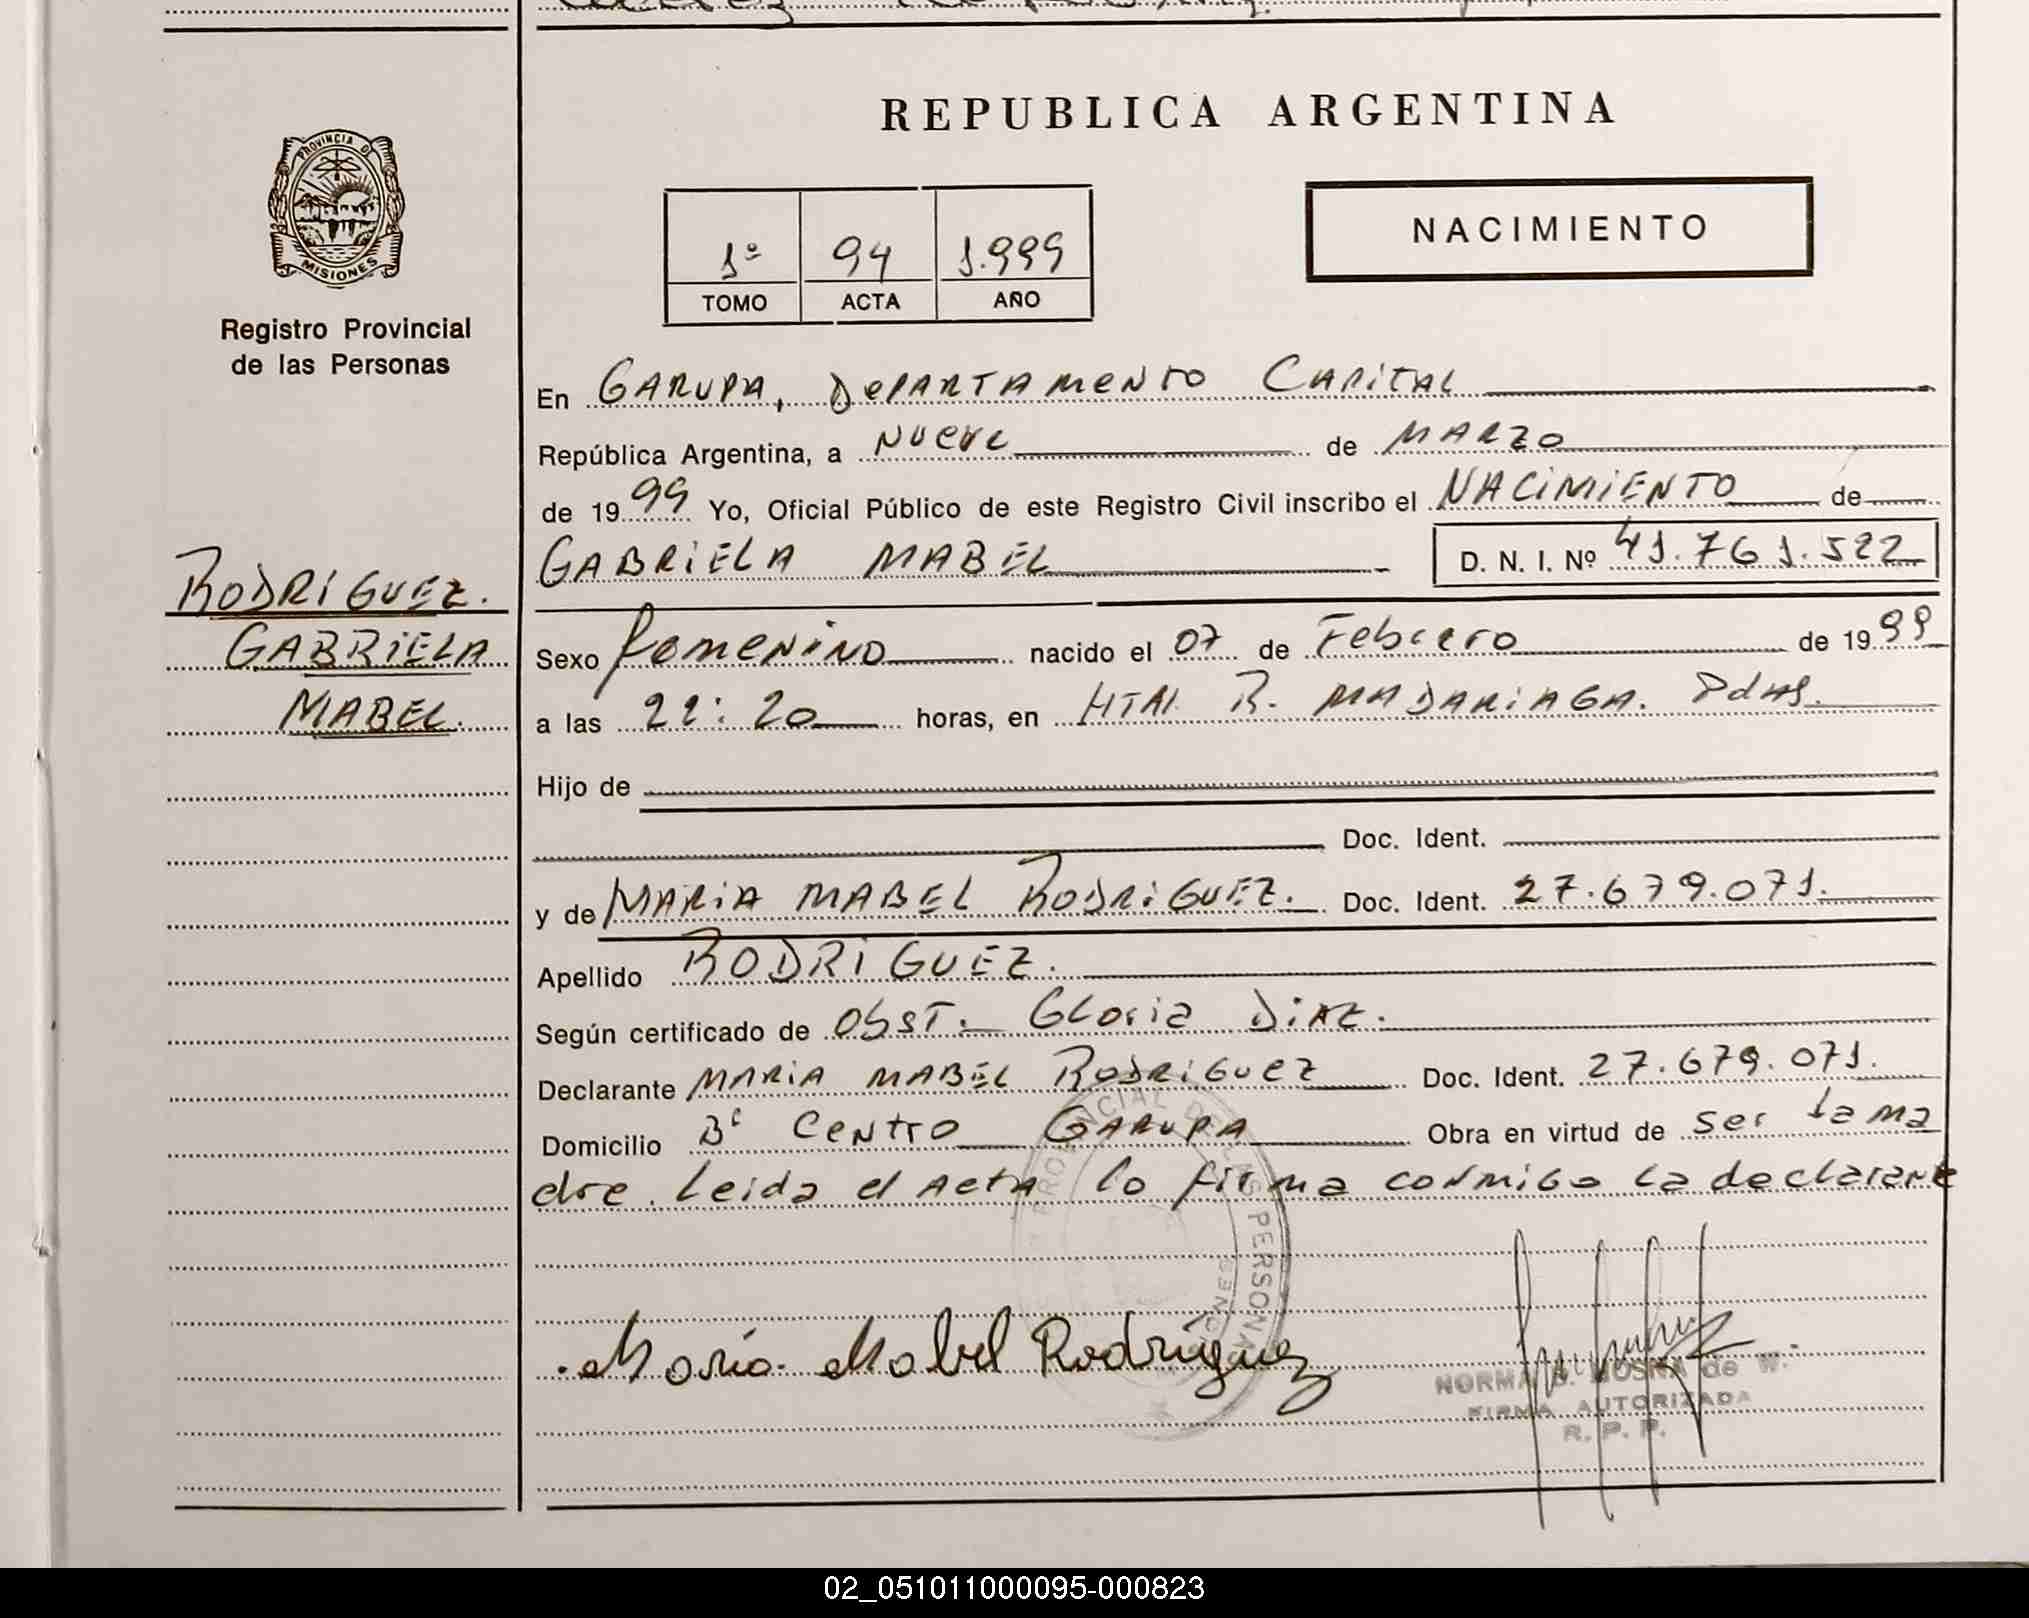 REPUBLICA ARGENTINA
PROVINCIA DE
MISIONES
Registro Provincial
de las Personas
1º 94 1.999
TOMO ACTA AÑO
NACIMIENTO
En GARUPA, DEPARTAMENTO CAPITAL
República Argentina, a NUEVE de MARZO
de 1999 Yo, Oficial Público de este Registro Civil inscribo el NACIMIENTO de
GABRIELA MABEL D. N. I. Nº 41.761.522
RODRIGUEZ.
GABRIELA
MABEL.
Sexo femenino nacido el 07 de Febrero de 1999
a las 22:20 horas, en HTAL R. MADARIAGA. Pdas.
Hijo de
Doc. Ident.
y de MARIA MABEL RODRIGUEZ. Doc. Ident. 27.679.071.
Apellido RODRIGUEZ.
Según certificado de Obst. Gloria DIAZ.
Declarante MARIA MABEL RODRIGUEZ Doc. Ident. 27.679.071.
Domicilio Bº CENTRO GARUPA Obra en virtud de ser la ma
dre. Leida el acta lo firma conmigo la declarante
María Mabel Rodríguez
FIRMA AUTORIZADA
R. P. P.
02_051011000095-000823